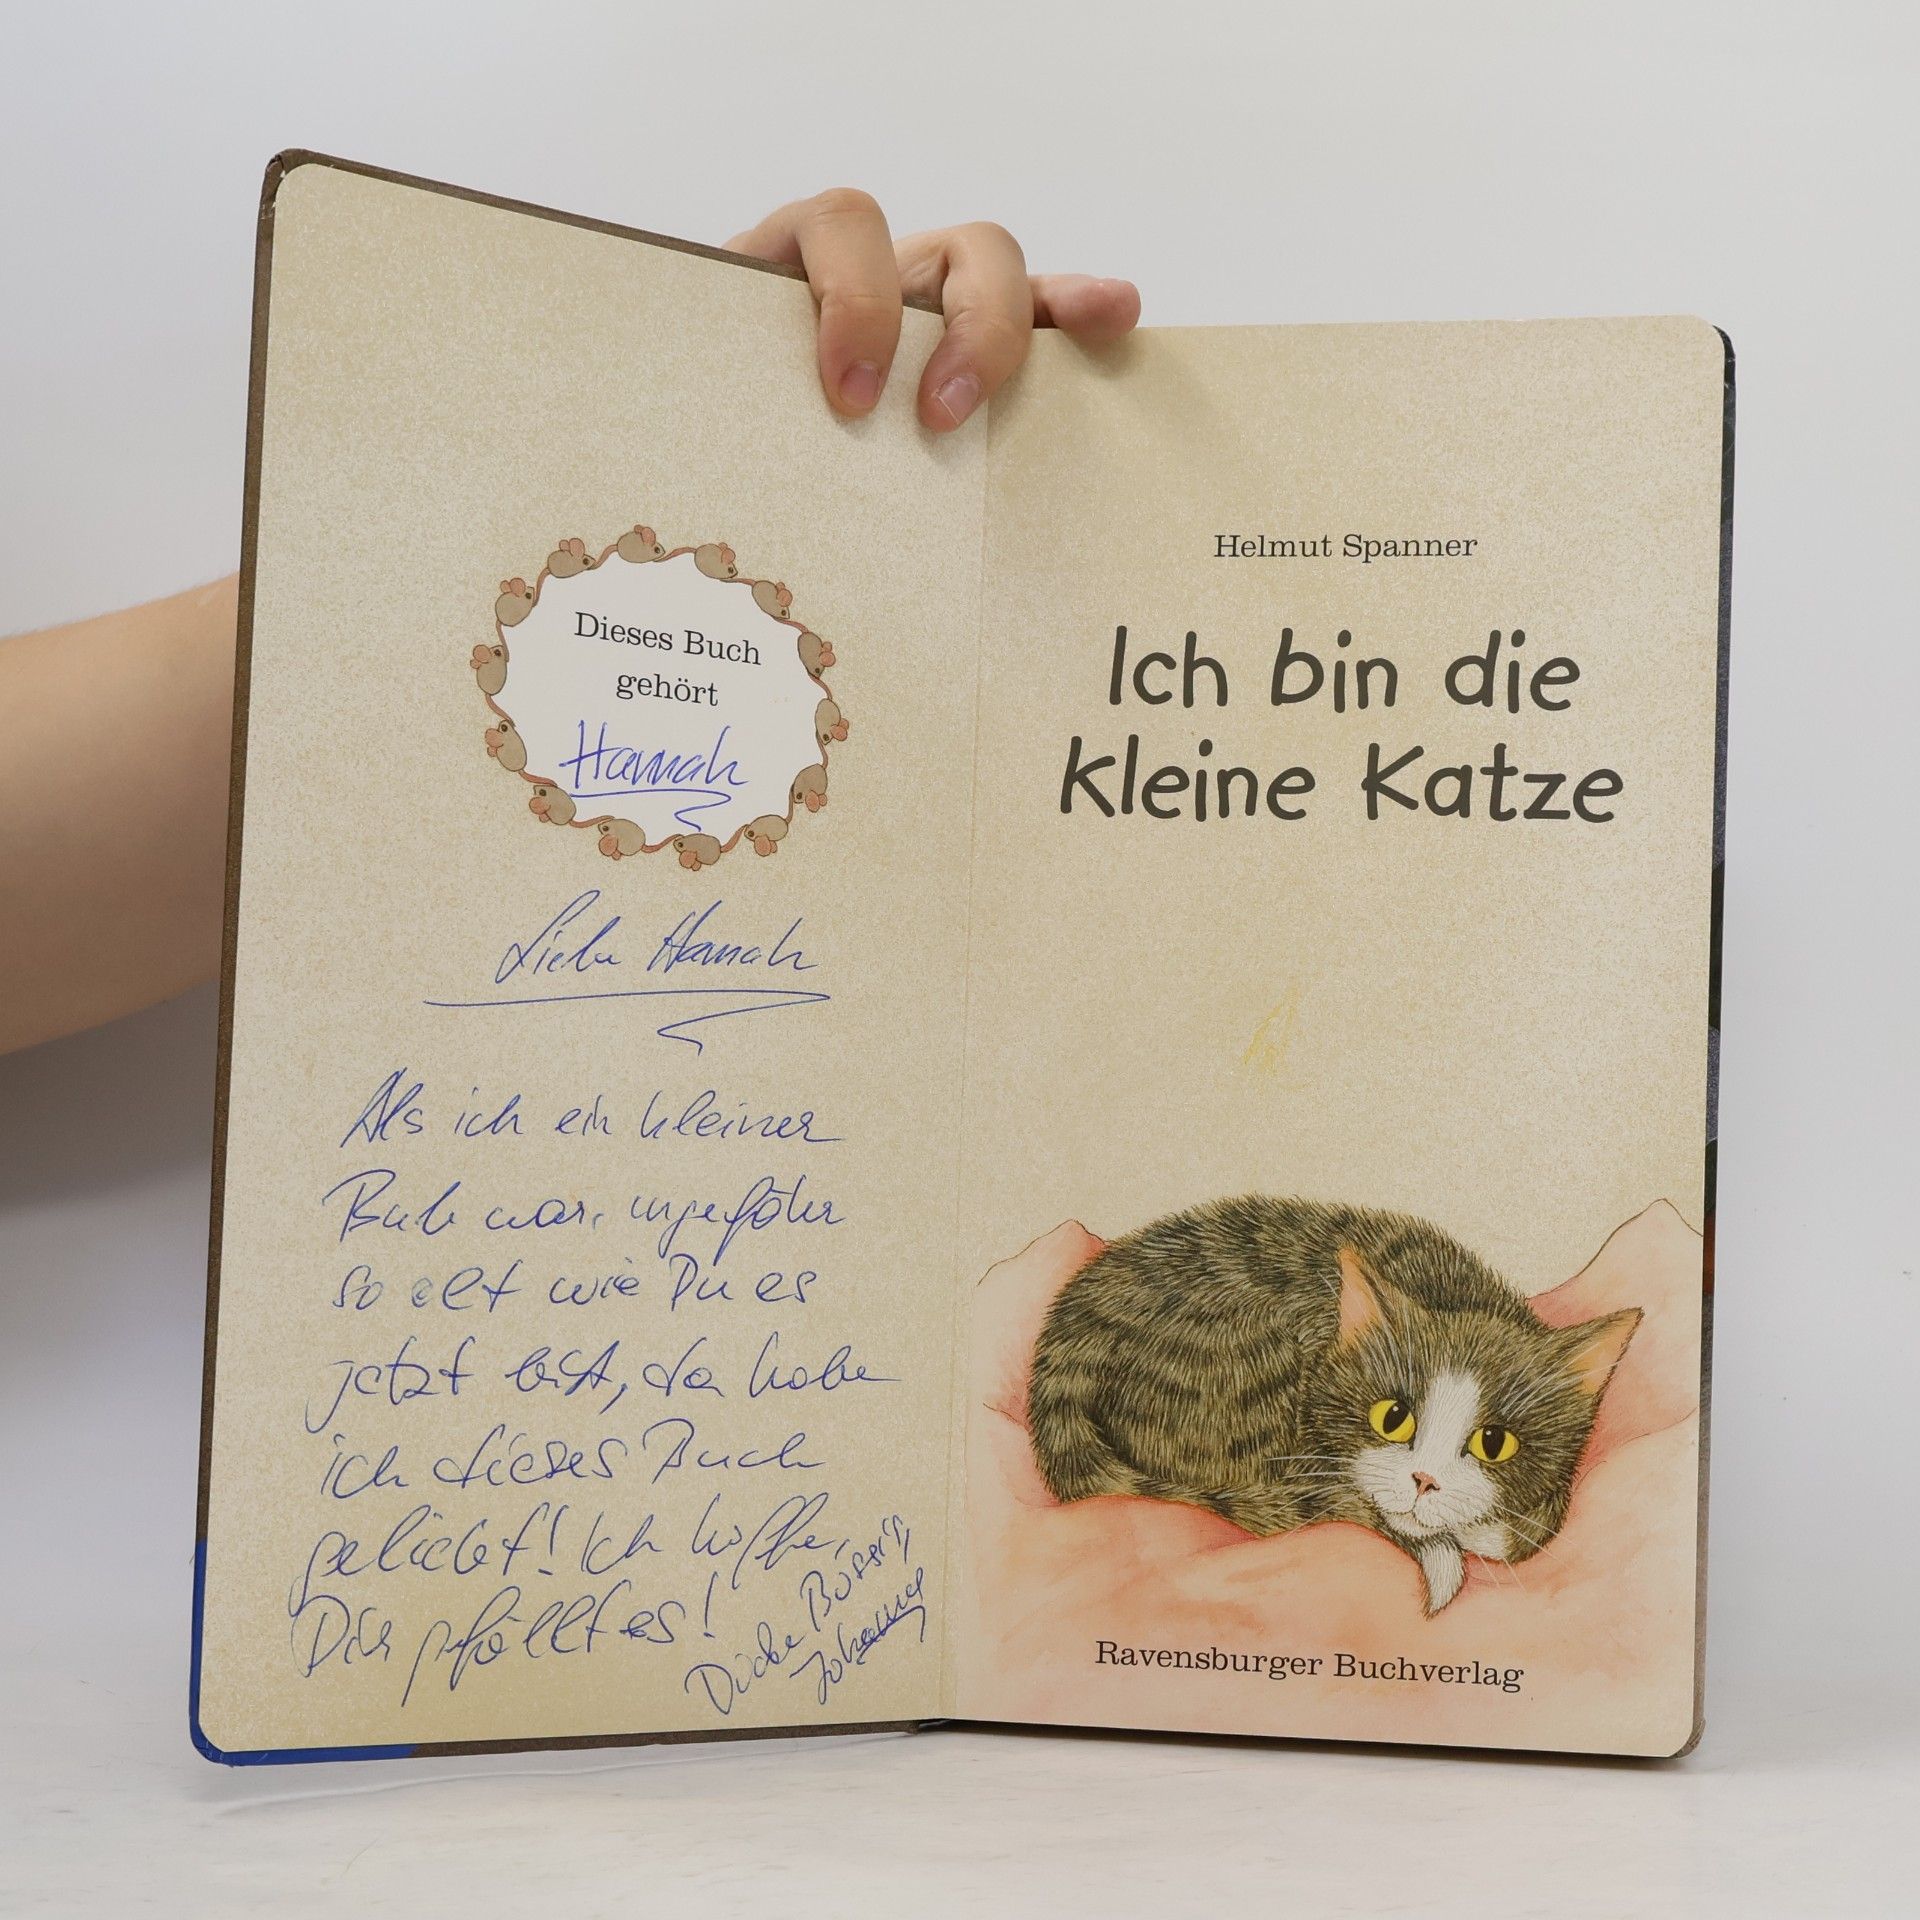 Dieses Buch
gehört
Hannah
Liebe Hannah
Als ich ein kleiner
Bub war, ungefähr
so alt wie Du es
jetzt bist, da habe
ich dieses Buch
geliebt! Ich hoffe,
Dir gefällt es!
Dicke Bussis,
Johannes
Helmut Spanner
Ich bin die
kleine Katze
Ravensburger Buchverlag